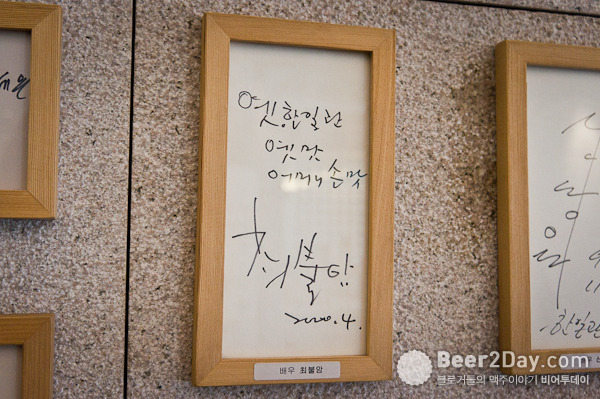 옛한일관
옛맛
어머니 손맛
최불암
2000.4.
배우 최불암
한일관
Beer2Day.com
블로거들의 맥주이야기 비어투데이